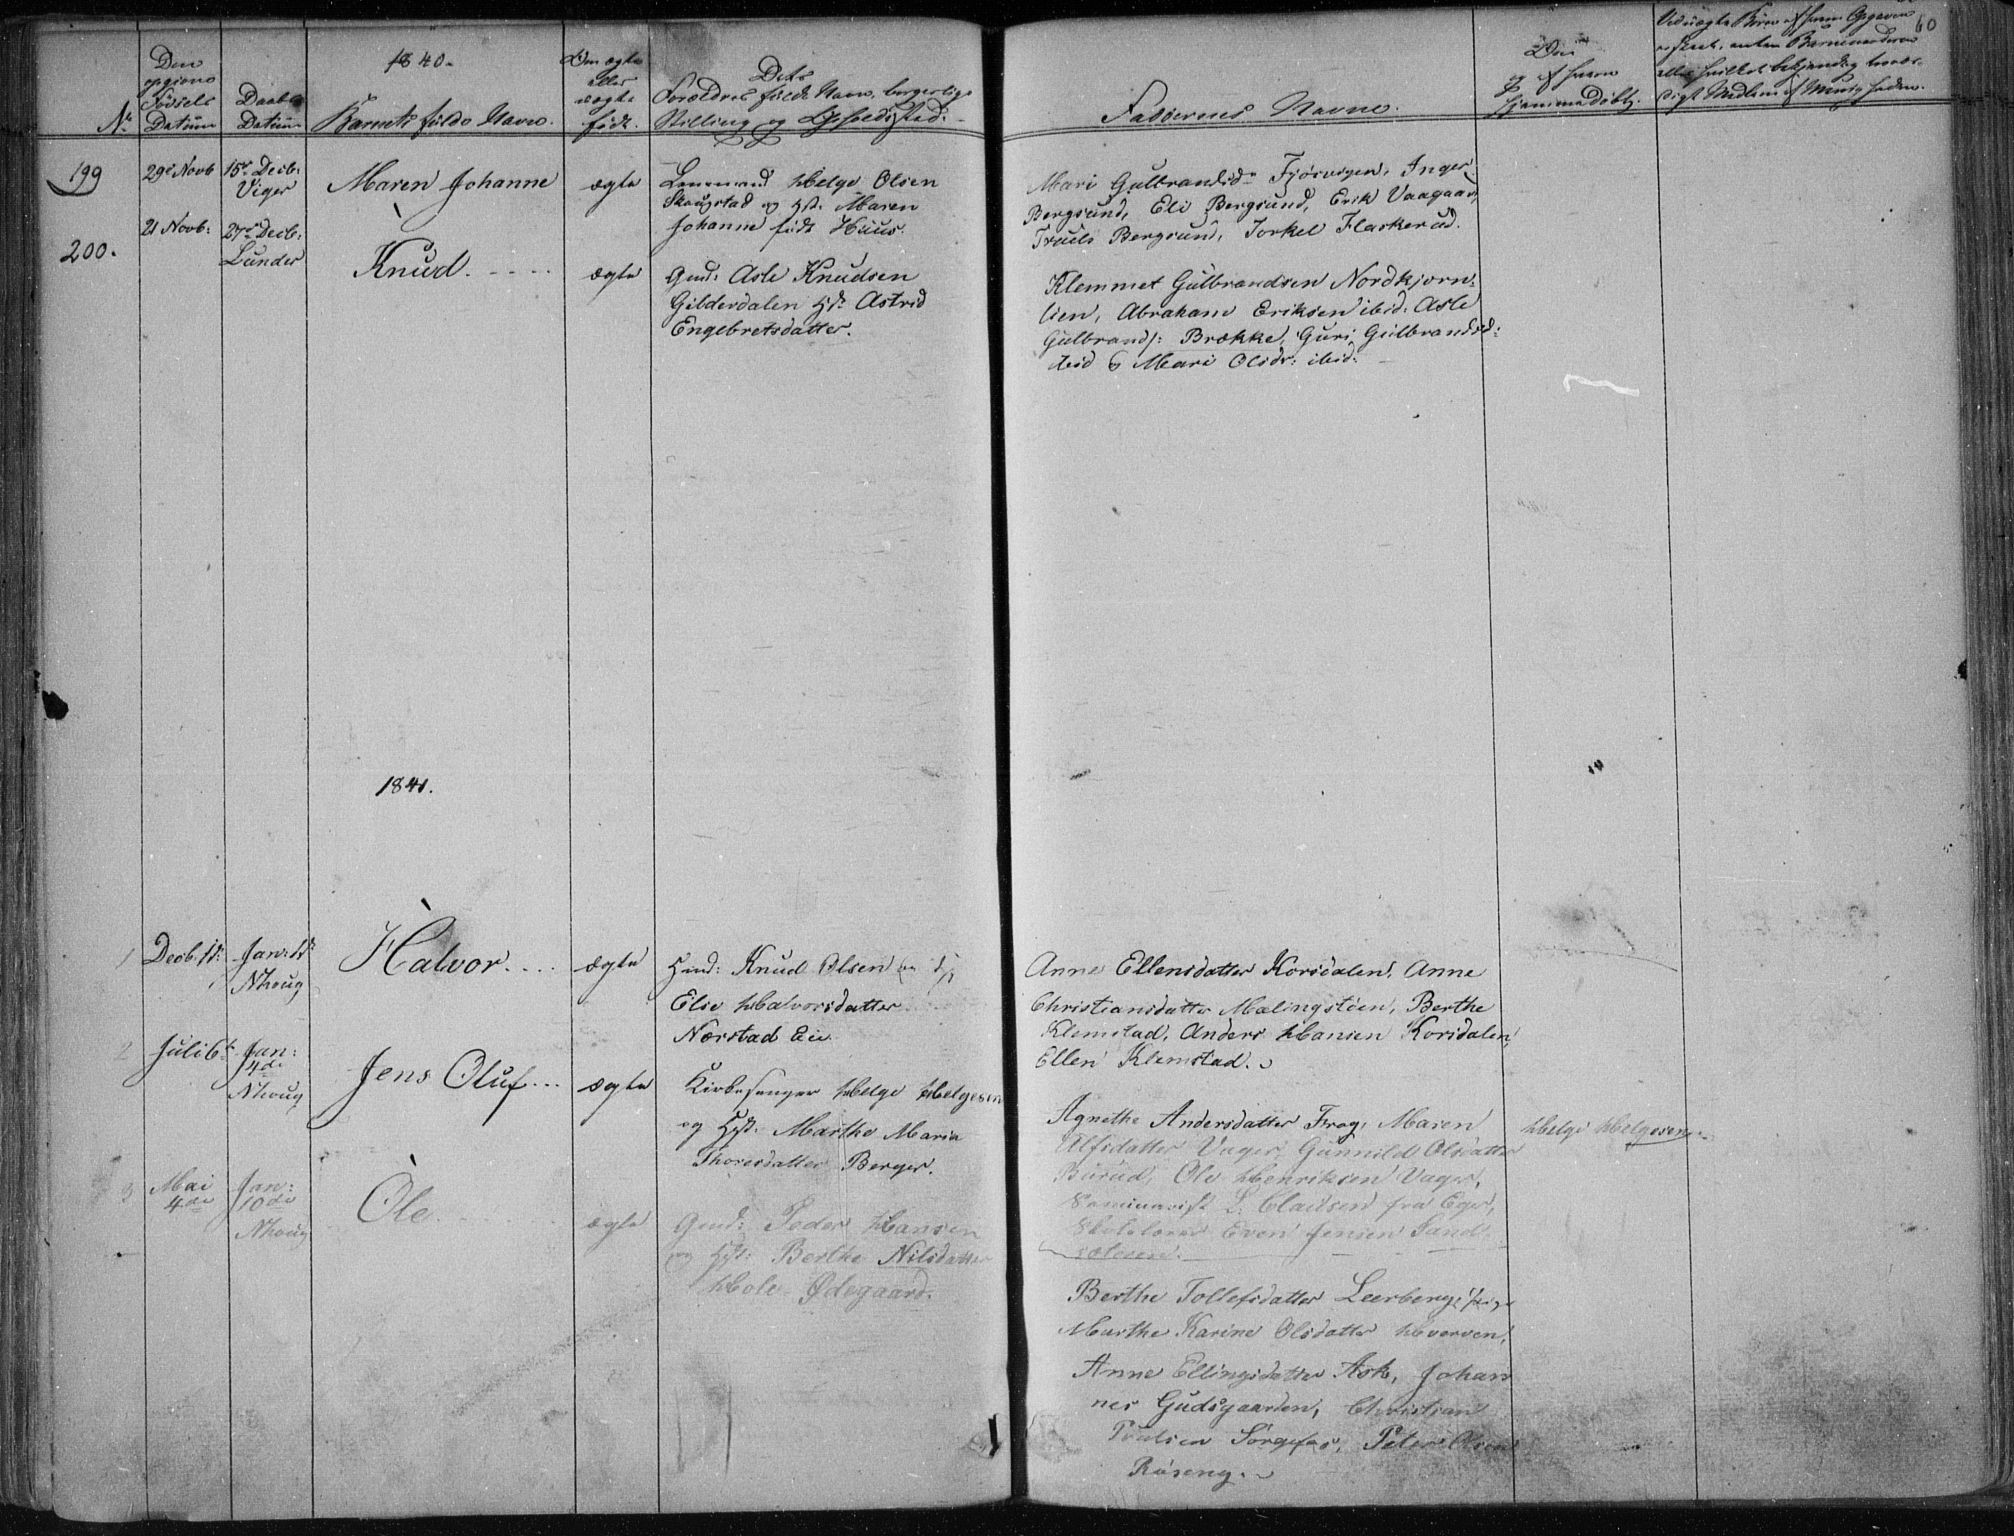 60
1840.
Den
opgivne
Fødsels
Datum
Daabs
Datum
No
Barnets fulde Navn.
Om ægte
eller
uægte
født.
Dets
Forældres fulde Navn, borgerlige
Stilling og Opholdsstæd.
Faddernes Navne.
Om
og af hvem
hjemmedöbt.
199
29de Novb
15de Decb:
Viger
Maren Johanne
ægte
Lensmand Helge Olsen
Skougstad og Hst. Maren
Johanne født Huus.
Mari Gulbrandsdr Fjösvigen, Inger
Bergsund, Eli Bergsund, Erik Vaagaar,
Truels Bergsund, Torkel Flaskerud.
200.
21 Novb:
27de Decb:
Lunder
Knud. - - - -
ægte
Gmd: Asle Knudsen
Gilderdalen Hst: Astrid
Engebretsdatter.
Klemmet Gulbrandsen Nordkjorn-
lien, Abraham Eriksen ibid: Asle
Gulbrands: Brække, Guri Gulbrandsd:
ibid & Mari Olsdr: ibid:
1841.
1
Decb. 1st:
Jan: 1st
Nhoug
Halvor. . . .
ægte
Hmd: Knud Olsen og Hst
Elie Halvorsdatter
Nærstad Eie
Anne Ellensdatter Korsdalen, Anne
Christiansdatter Malingstöen, Berthe
Klemstad, Anders Hansen Korsdalen,
Ellen Klemstad.
2
Juli 6te
Jan:
4de
Nhoug
Jens Oluf...
ægte
Kirkesanger Helge Helgesen
og Hst. Marthe Maria
Thoresdatter Berger.
Agnethe Andersdatter Frog, Maren
Ulfsdatter Vager, Gunnild Olsdatter
Burud, Ole Henriksen Vager,
Seminarist L. Clausen fra Eger,
Skolelærer Even Jensen Sand-
sætesen.
Helge Helgesen.
3
Mai
4de
Jan:
10de
Nhoug
Ole.
ægte
Gmd: Peder Hansen
og Hst: Berthe Nilsdatter
Hole Ødegaard.
Berthe Tollefsdatter Leerberg, Pige
Marthe Karine Olsdatter Hverven,
Anne Ellingsdatter Ask, Johan
nes Gudsgaarden, Christian
Poulsen Sørgefos, Peter Olsen
Røseng.